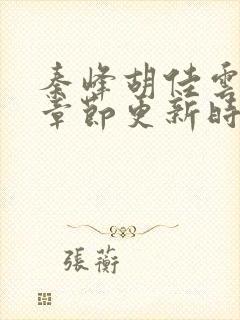 秦峰胡佳雲
章節更新時
張蘅